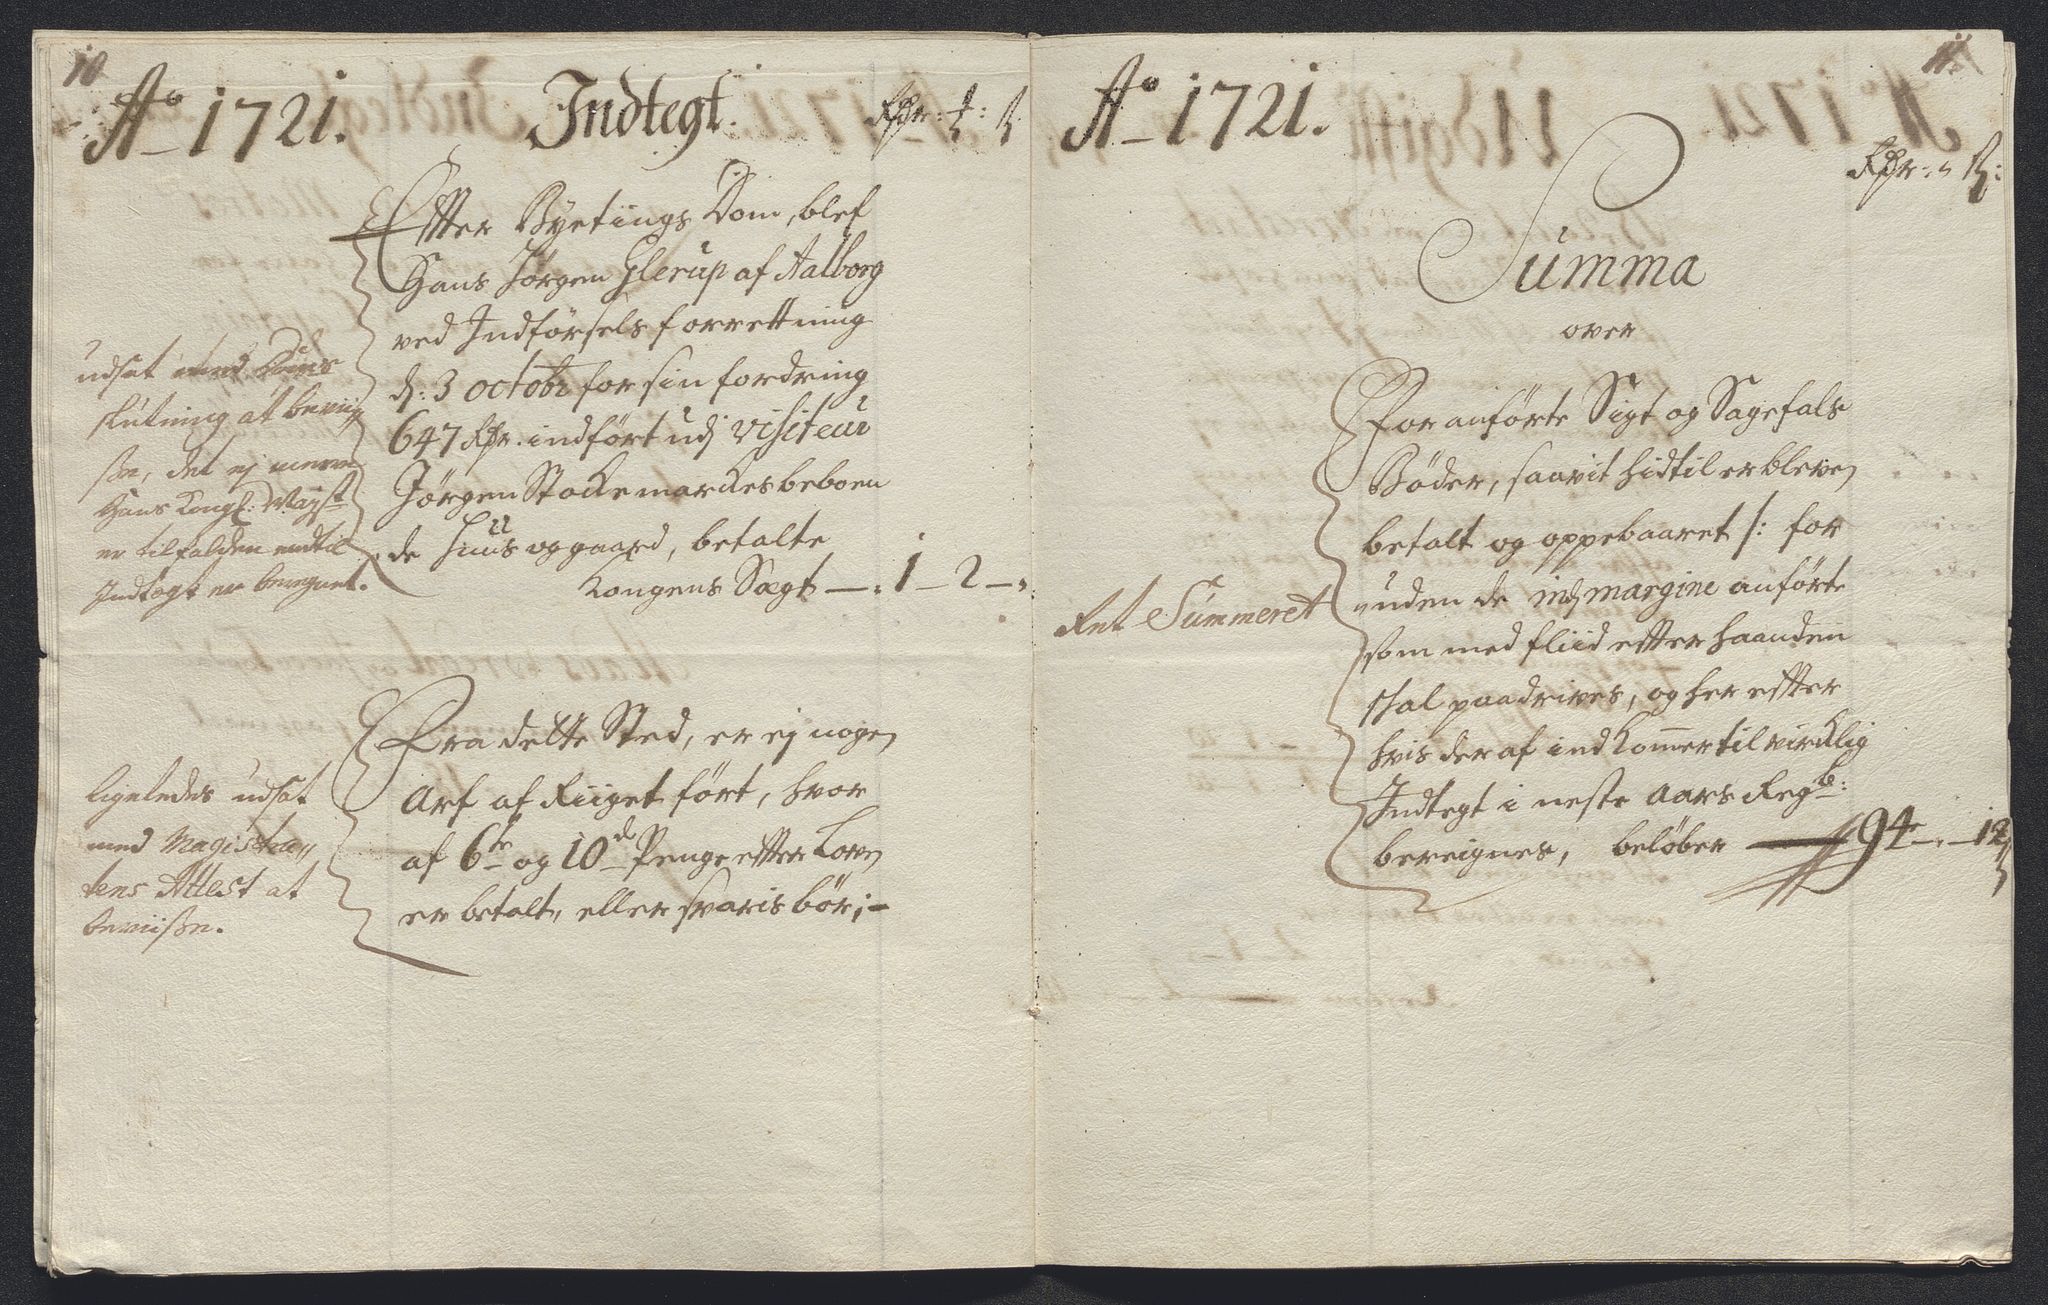 10
Ao 1721. Indtegt. Rdr: ort: s
Effter Byetings Dom, blef
Hans Jørgen Glerup af Aalborg
ved Indførsels forrettning
d: 3 octobr for sin fordring
647 Rdr. indført udj Visiteur
Jørgen Stockemarckes beboen
de Huus og gaard, betalte
Kongens Sagt —. 1 – 2 –"
udsat med
slutning at bevii
ße, det ej meere
Hans Kongl: Mayst
er tilfalden end til
Indtegt er beregnet.
Fra dette Sted, er ej nogen
Arf af Riiget ført, hvor
af 6te og 10de Penge effter Loven
er betalt, eller svaris bør;–
ligeledes udsat
med Magistra„
tens Attest at
beviiße.
11.
Ao 1721.
Rdr: " s:
Summa
over
Foranførte Sigt og Sagefals
Bøder, saavit hidtil er bleven
betalt og oppebaaret /: for
uden de udj margine anførte
som med fliid effter haanden
skal paadrives, og her effter
hvis der af indkommer til virchlig
Indtegt i neste Aars Regb:
bereignes, beløber — 94 –. – 12
Ret Summeret